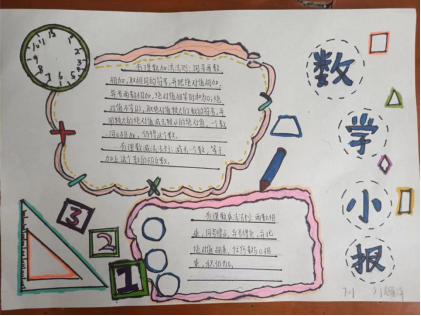 数
学
小
报
有理数加法法则:同号两数
相加,取相同的符号,并把绝对值相加,
异号两数相加,绝对值相等时和为0;绝
对值不等时,取绝对值较大的数的符号,并
用较大的绝对值减去较小的绝对值,一个数
同0相加,仍得这个数。
有理数减法法则:减去一个数,等于
加上这个数的相反数。
有理数乘法法则:两数相
乘,同号得正,异号得负,并把
绝对值相乘,任何数与0相
乘,积仍为0。
3
2
1